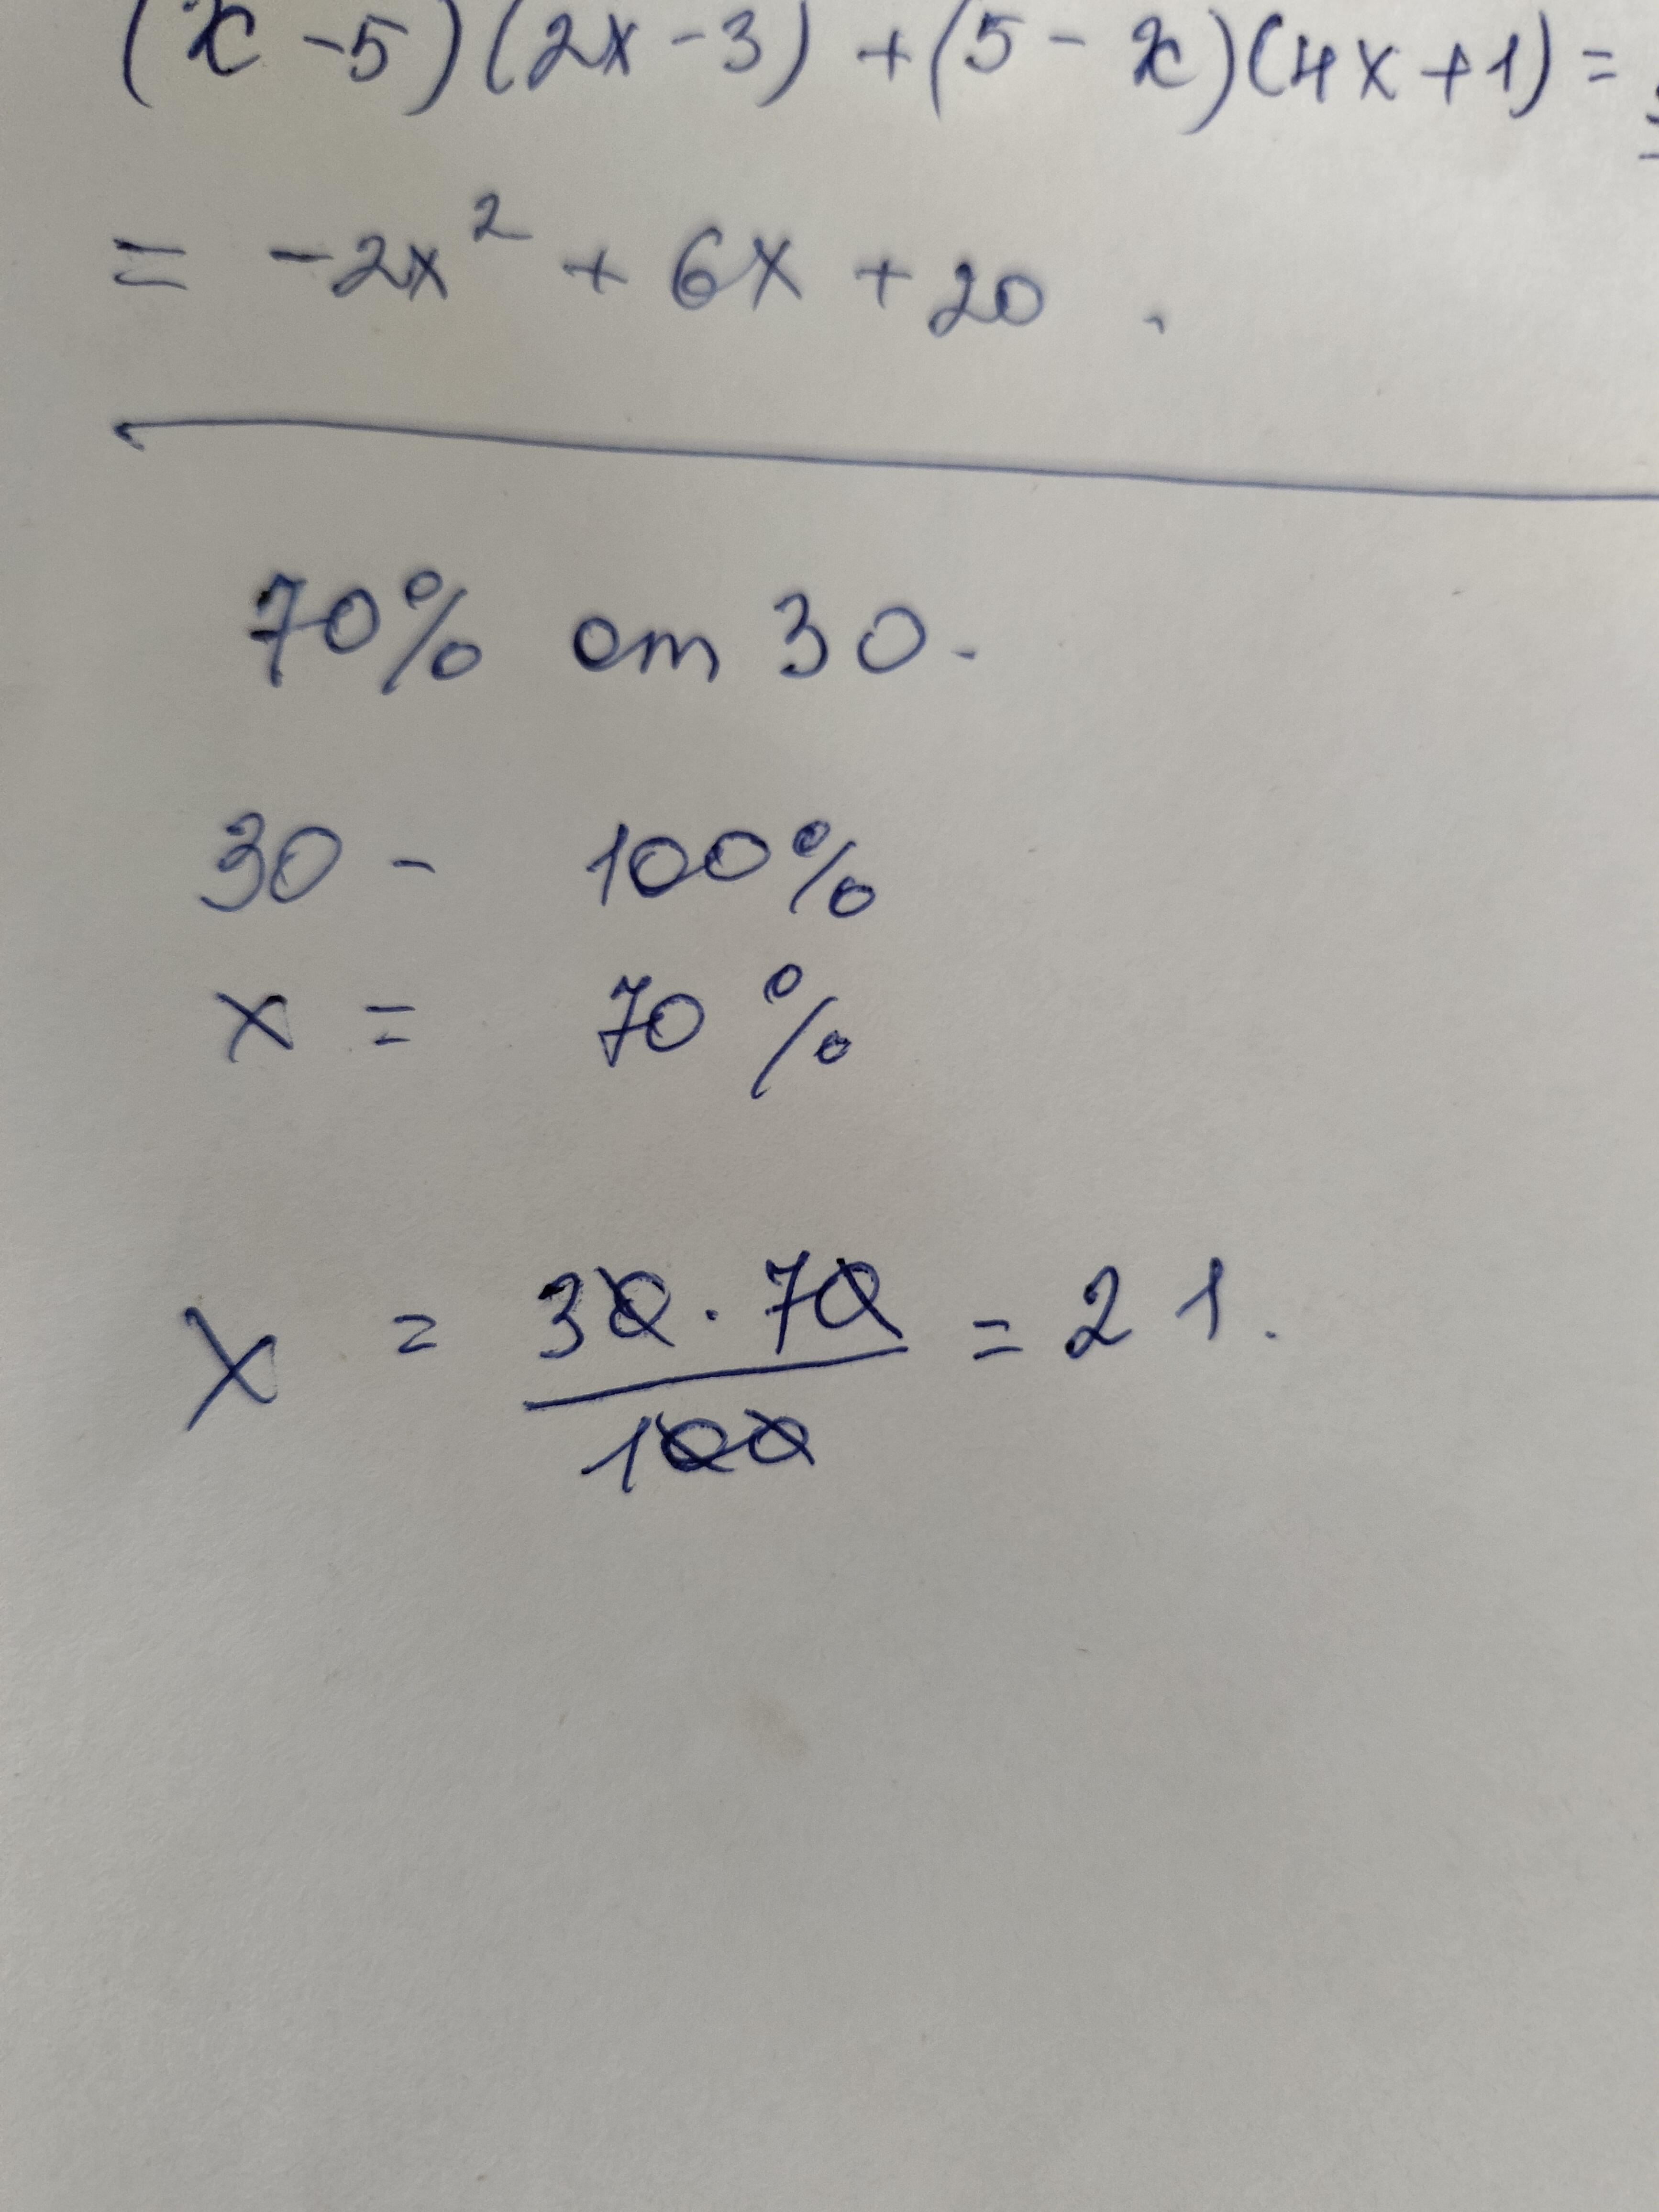 (x - 5)(2x - 3) + (5 - x)(4x + 1) =
= -2x² + 6x + 20 .
70% от 30.
30 - 100%
x = 70%
x = \frac{30 · 70}{100} = 21.